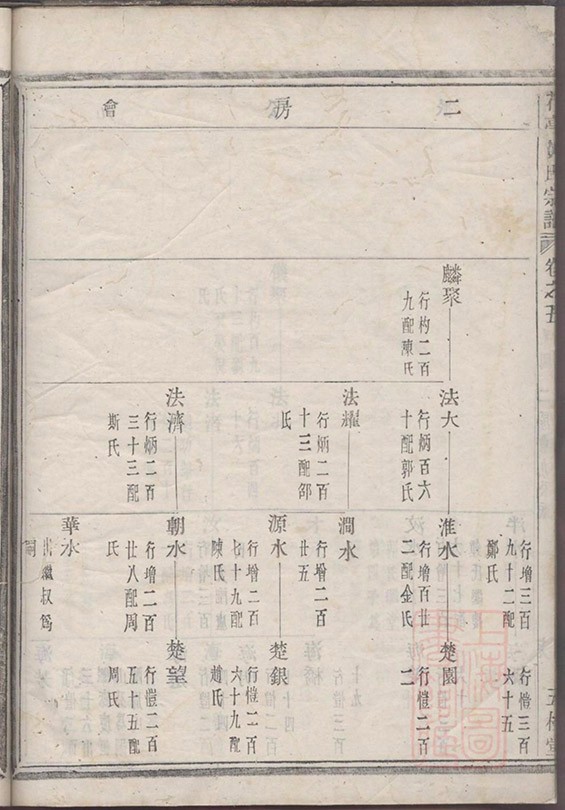 二房會
氏宗譜
卷之五
行增三百
九十二配
鄭氏
行愷三百
六十五
麟聚
行构二百
九配陳氏
法大
行炳百六
十配郭氏
淮水
行增百廿
二配金氏
楚園
行愷二百
二
法耀
行炳二百
十三配邵
氏
澗水
行增二百
廿五
源水
行增二百
七十九配
陳氏
楚銀
行愷二百
六十九配
趙氏
法濟
行炳二百
三十三配
斯氏
朝水
行增二百
廿八配周
氏
楚望
行愷二百
五十五配
周氏
華水
出繼叔爲
嗣